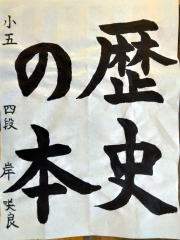 歴史
の本
小五 四段 岸咲良